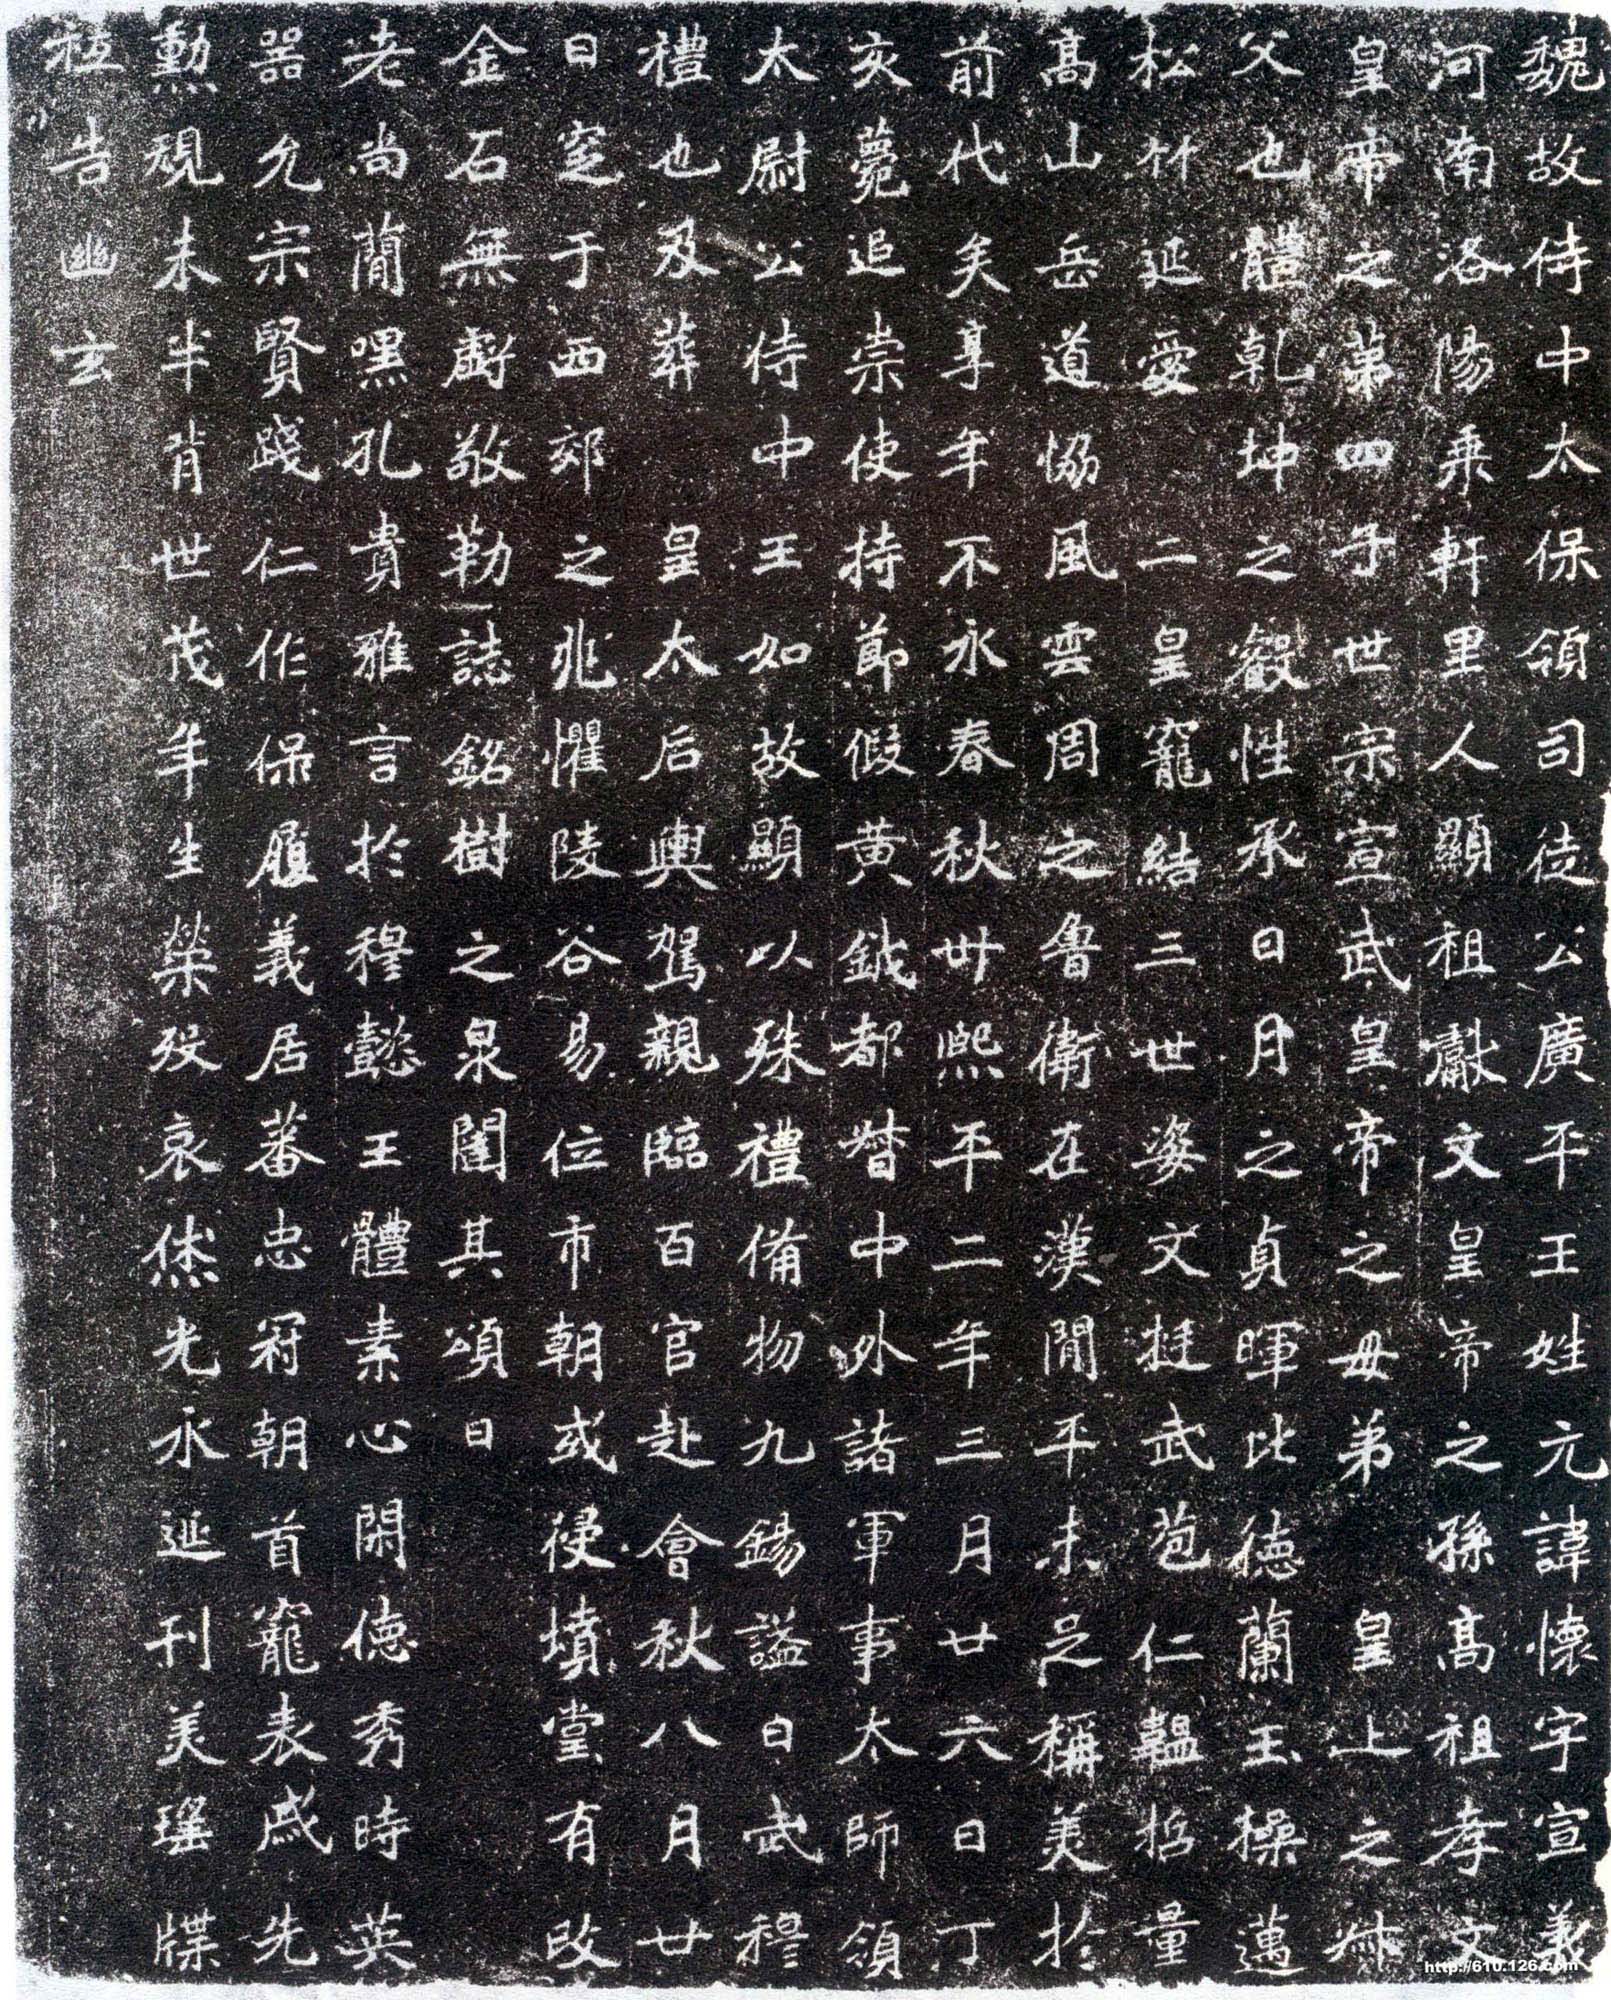 魏故侍中太保領司徒公廣平王姓元諱懷字宣義
河南洛陽乘軒里人顯祖獻文皇帝之孫高祖孝文
皇帝之第四子世宗宣武皇帝之母弟皇上之叔
父也體乾坤之叡性承日月之貞暉比德蘭玉操邁
松竹延愛二皇寵結三世姿文挺武苞仁韞哲量
高山岳道協風雲周之魯衛在漢閒平未足稱美於
前代矣享年不永春秋卅熙平二年三月廿六日丁
亥薨追崇使持節假黃鉞都督中外諸軍事太師領
太尉公侍中王如故顯以殊禮備物九錫謚曰武穆
禮也及葬皇太后輿駕親臨百官赴會秋八月廿
日窆于西郊之兆懼陵谷易位市朝或侵墳堂有改
金石無虧敬勒誌銘樹之泉闥其頌曰
老尚簡嘿孔貴雅言於穆懿王體素心閑德秀時英
器允宗賢踐仁作保履義居蕃忠冠朝首寵表戚先
勳䫉未半背世茂年生榮歿哀休光永延刊美瑤牒
祗告幽玄
http://610.126.com